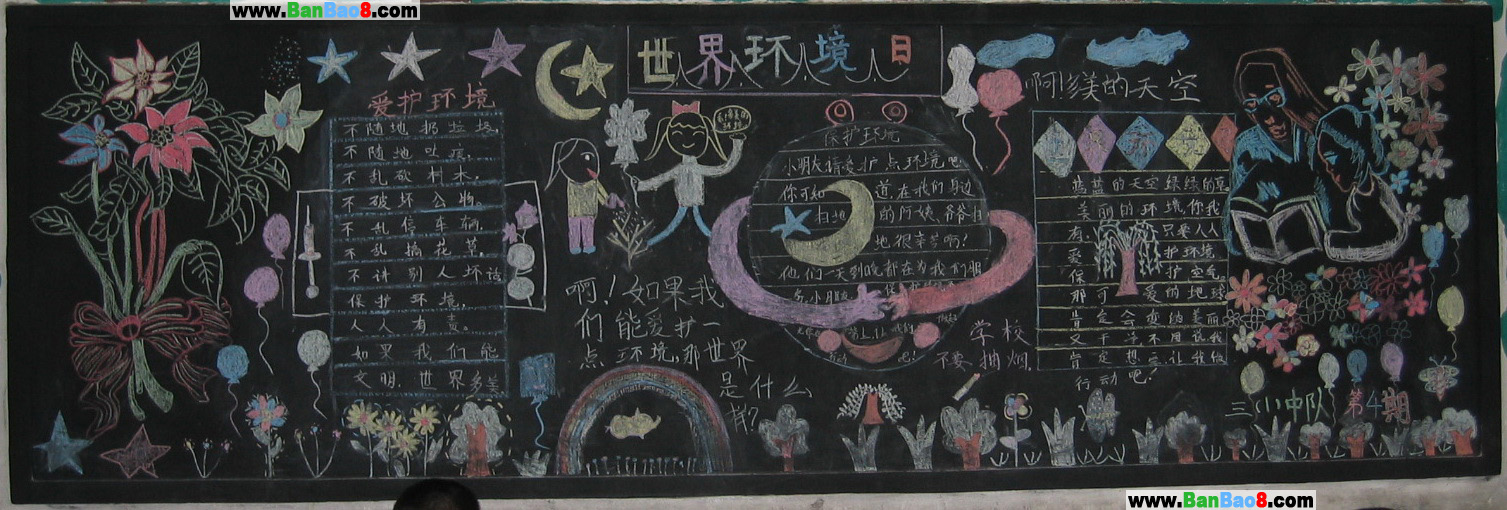 www.BanBao8.com
世界环境日
爱护环境
不随地扔垃圾，
不随地吐痰，
不乱砍树木，
不破坏公物。
不乱停车辆，
不乱摘花草。
不讲别人坏话
保护环境，
人人有责。
如果我们能
文明，世界多美
啊！如果我
们能爱护一
点环境，那世界
是什么
样？
保护环境
小朋友请爱护点环境吧
你可知道，在我们身边
扫地的阿姨、爷爷扫
地很辛苦啊！
他们一天到晚都在为我们服
吧！
学校
不要抽烟，
啊！美的天空
蓝蓝的天空绿绿的草
美丽的环境，你我
有，只要人人
爱护环境
保护空气。
那可爱的地球
肯定会变的美丽
行动吧！
三（1）中队 第4期
www.BanBao8.com